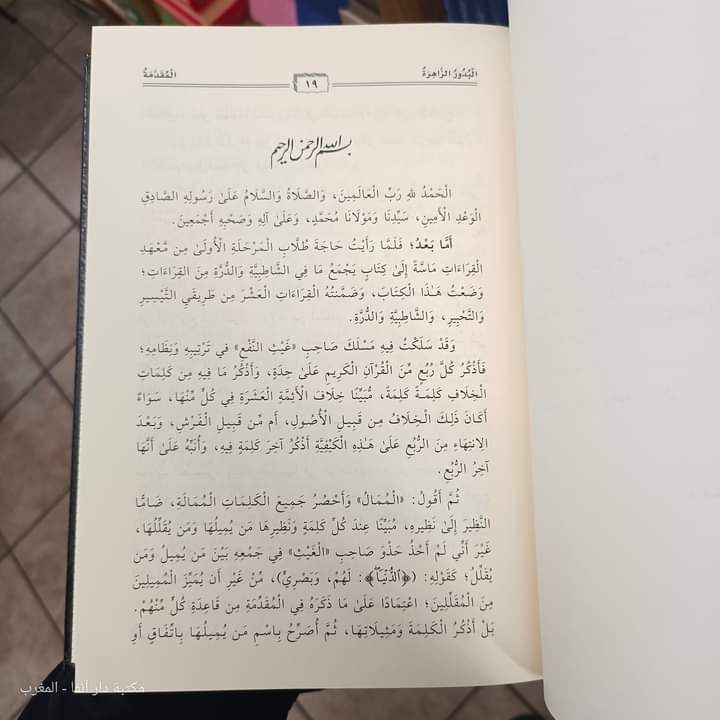 البُدُورُ الزَّاهِرَةُ
١٩
المُقَدِّمَةُ
بسم الله الرحمن الرحيم
الْحَمْدُ للهِ رَبِّ الْعَالَمِينَ، وَالصَّلَاةُ وَالسَّلَامُ عَلَىٰ رَسُولِهِ الصَّادِقِ
الْوَعْدِ الْأَمِينِ، سَيِّدِنَا وَمَوْلَانَا مُحَمَّدٍ، وَعَلَىٰ آلِهِ وَصَحْبِهِ أَجْمَعِينَ.
أَمَّا بَعْدُ؛ فَلَمَّا رَأَيْتُ حَاجَةَ طُلَّابِ الْمَرْحَلَةِ الْأُولَىٰ مِن مَّعْهَدِ
الْقِرَاءَاتِ مَاسَّةً إِلَىٰ كِتَابٍ يَجْمَعُ مَا فِي الشَّاطِبِيَّةِ وَالدُّرَّةِ مِنَ الْقِرَاءَاتِ؛
وَضَعْتُ هَٰذَا الْكِتَابَ، وَضَمَّنتُهُ الْقِرَاءَاتِ الْعَشْرَ مِن طَرِيقَيِ التَّيْسِيرِ
وَالتَّحْبِيرِ، وَالشَّاطِبِيَّةِ وَالدُّرَّةِ.
وَقَدْ سَلَكْتُ فِيهِ مَسْلَكَ صَاحِبِ «غَيْثِ النَّفْعِ» فِي تَرْتِيبِهِ وَنِظَامِهِ؛
فَأَذْكُرُ كُلَّ رُبُعٍ مِّنَ الْقُرْآنِ الْكَرِيمِ عَلَىٰ حِدَةٍ، وَأَذْكُرُ مَا فِيهِ مِن كَلِمَاتِ
الْخِلَافِ كَلِمَةً كَلِمَةً، مُبَيِّنًا خِلَافَ الْأَئِمَّةِ الْعَشَرَةِ فِي كُلٍّ مِّنْهَا، سَوَاءٌ
أَكَانَ ذَٰلِكَ الْخِلَافُ مِن قَبِيلِ الْأُصُولِ، أَم مِّن قَبِيلِ الْفَرْشِ، وَبَعْدَ
الِانتِهَاءِ مِنَ الرُّبُعِ عَلَىٰ هَٰذِهِ الْكَيْفِيَّةِ أَذْكُرُ آخِرَ كَلِمَةٍ فِيهِ، وَأُنَبِّهُ عَلَىٰ أَنَّهَا
آخِرُ الرُّبُعِ.
ثُمَّ أَقُولُ: «الْمُمَالُ» وَأَحْصُرُ جَمِيعَ الْكَلِمَاتِ الْمُمَالَةِ، ضَامًّا
النَّظِيرَ إِلَىٰ نَظِيرِهِ، مُبَيِّنًا عِندَ كُلِّ كَلِمَةٍ وَنَظِيرِهَا مَن يُمِيلُهَا وَمَن يُقَلِّلُهَا،
غَيْرَ أَنِّي لَمْ أَحْذُ حَذْوَ صَاحِبِ «الْغَيْثِ» فِي جَمْعِهِ بَيْنَ مَن يُمِيلُ وَمَن
يُقَلِّلُ؛ كَقَوْلِهِ: (﴿الدُّنْيَا﴾: لَهُمْ، وَبَصْرِيٍّ)، مِّنْ غَيْرِ أَن يُمَيِّزَ الْمُمِيلِينَ
مِنَ الْمُقَلِّلِينَ؛ اعْتِمَادًا عَلَىٰ مَا ذَكَرَهُ فِي الْمُقَدِّمَةِ مِن قَاعِدَةِ كُلٍّ مِّنْهُمْ.
بَلْ أَذْكُرُ الْكَلِمَةَ وَمَثِيلَاتِهَا، ثُمَّ أُصَرِّحُ بِاسْمِ مَن يُمِيلُهَا بِاتِّفَاقٍ أَوِ
مكتبة دار أنفا - المغرب